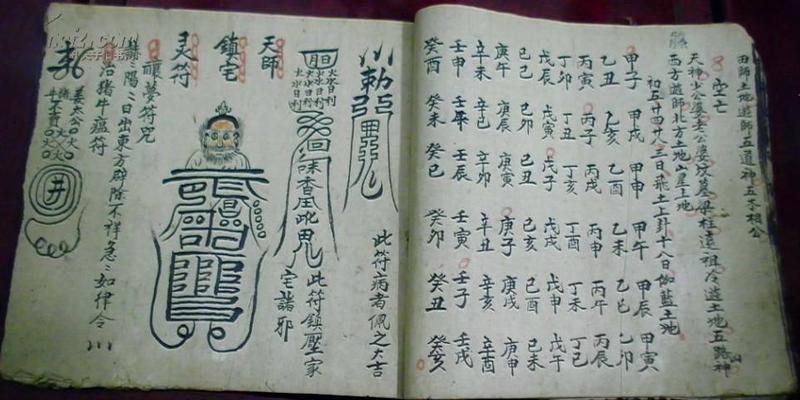 田師土地遊師五道神五木相公
空亡
天神少公婆老公婆坟墓梁柱遠祖冷遊土地五路神
西方道師北方土地山星土地
初五十四廿三日飛土上卦十八日伽藍土地
甲子 甲戌 甲申 甲午 甲辰 甲寅
乙丑 乙亥 乙酉 乙未 乙巳 乙卯
丙寅 丙子 丙戌 丙申 丙午 丙辰
丁卯 丁丑 丁亥 丁酉 丁未 丁巳
戊辰 戊寅 戊子 戊戌 戊申 戊午
己巳 己卯 己丑 己亥 己酉 己未
庚午 庚辰 庚寅 庚子 庚戌 庚申
辛未 辛巳 辛卯 辛丑 辛亥 辛酉
壬申 壬午 壬辰 壬寅 壬子 壬戌
癸酉 癸未 癸巳 癸卯 癸丑 癸亥
此符病者佩之大吉
此符鎮壓家
宅諸邪
天師
鎮宅
灵符
禳夢符咒
赫陽日出東方辟除不祥急急如律令
治猪牛瘟符
姜太公